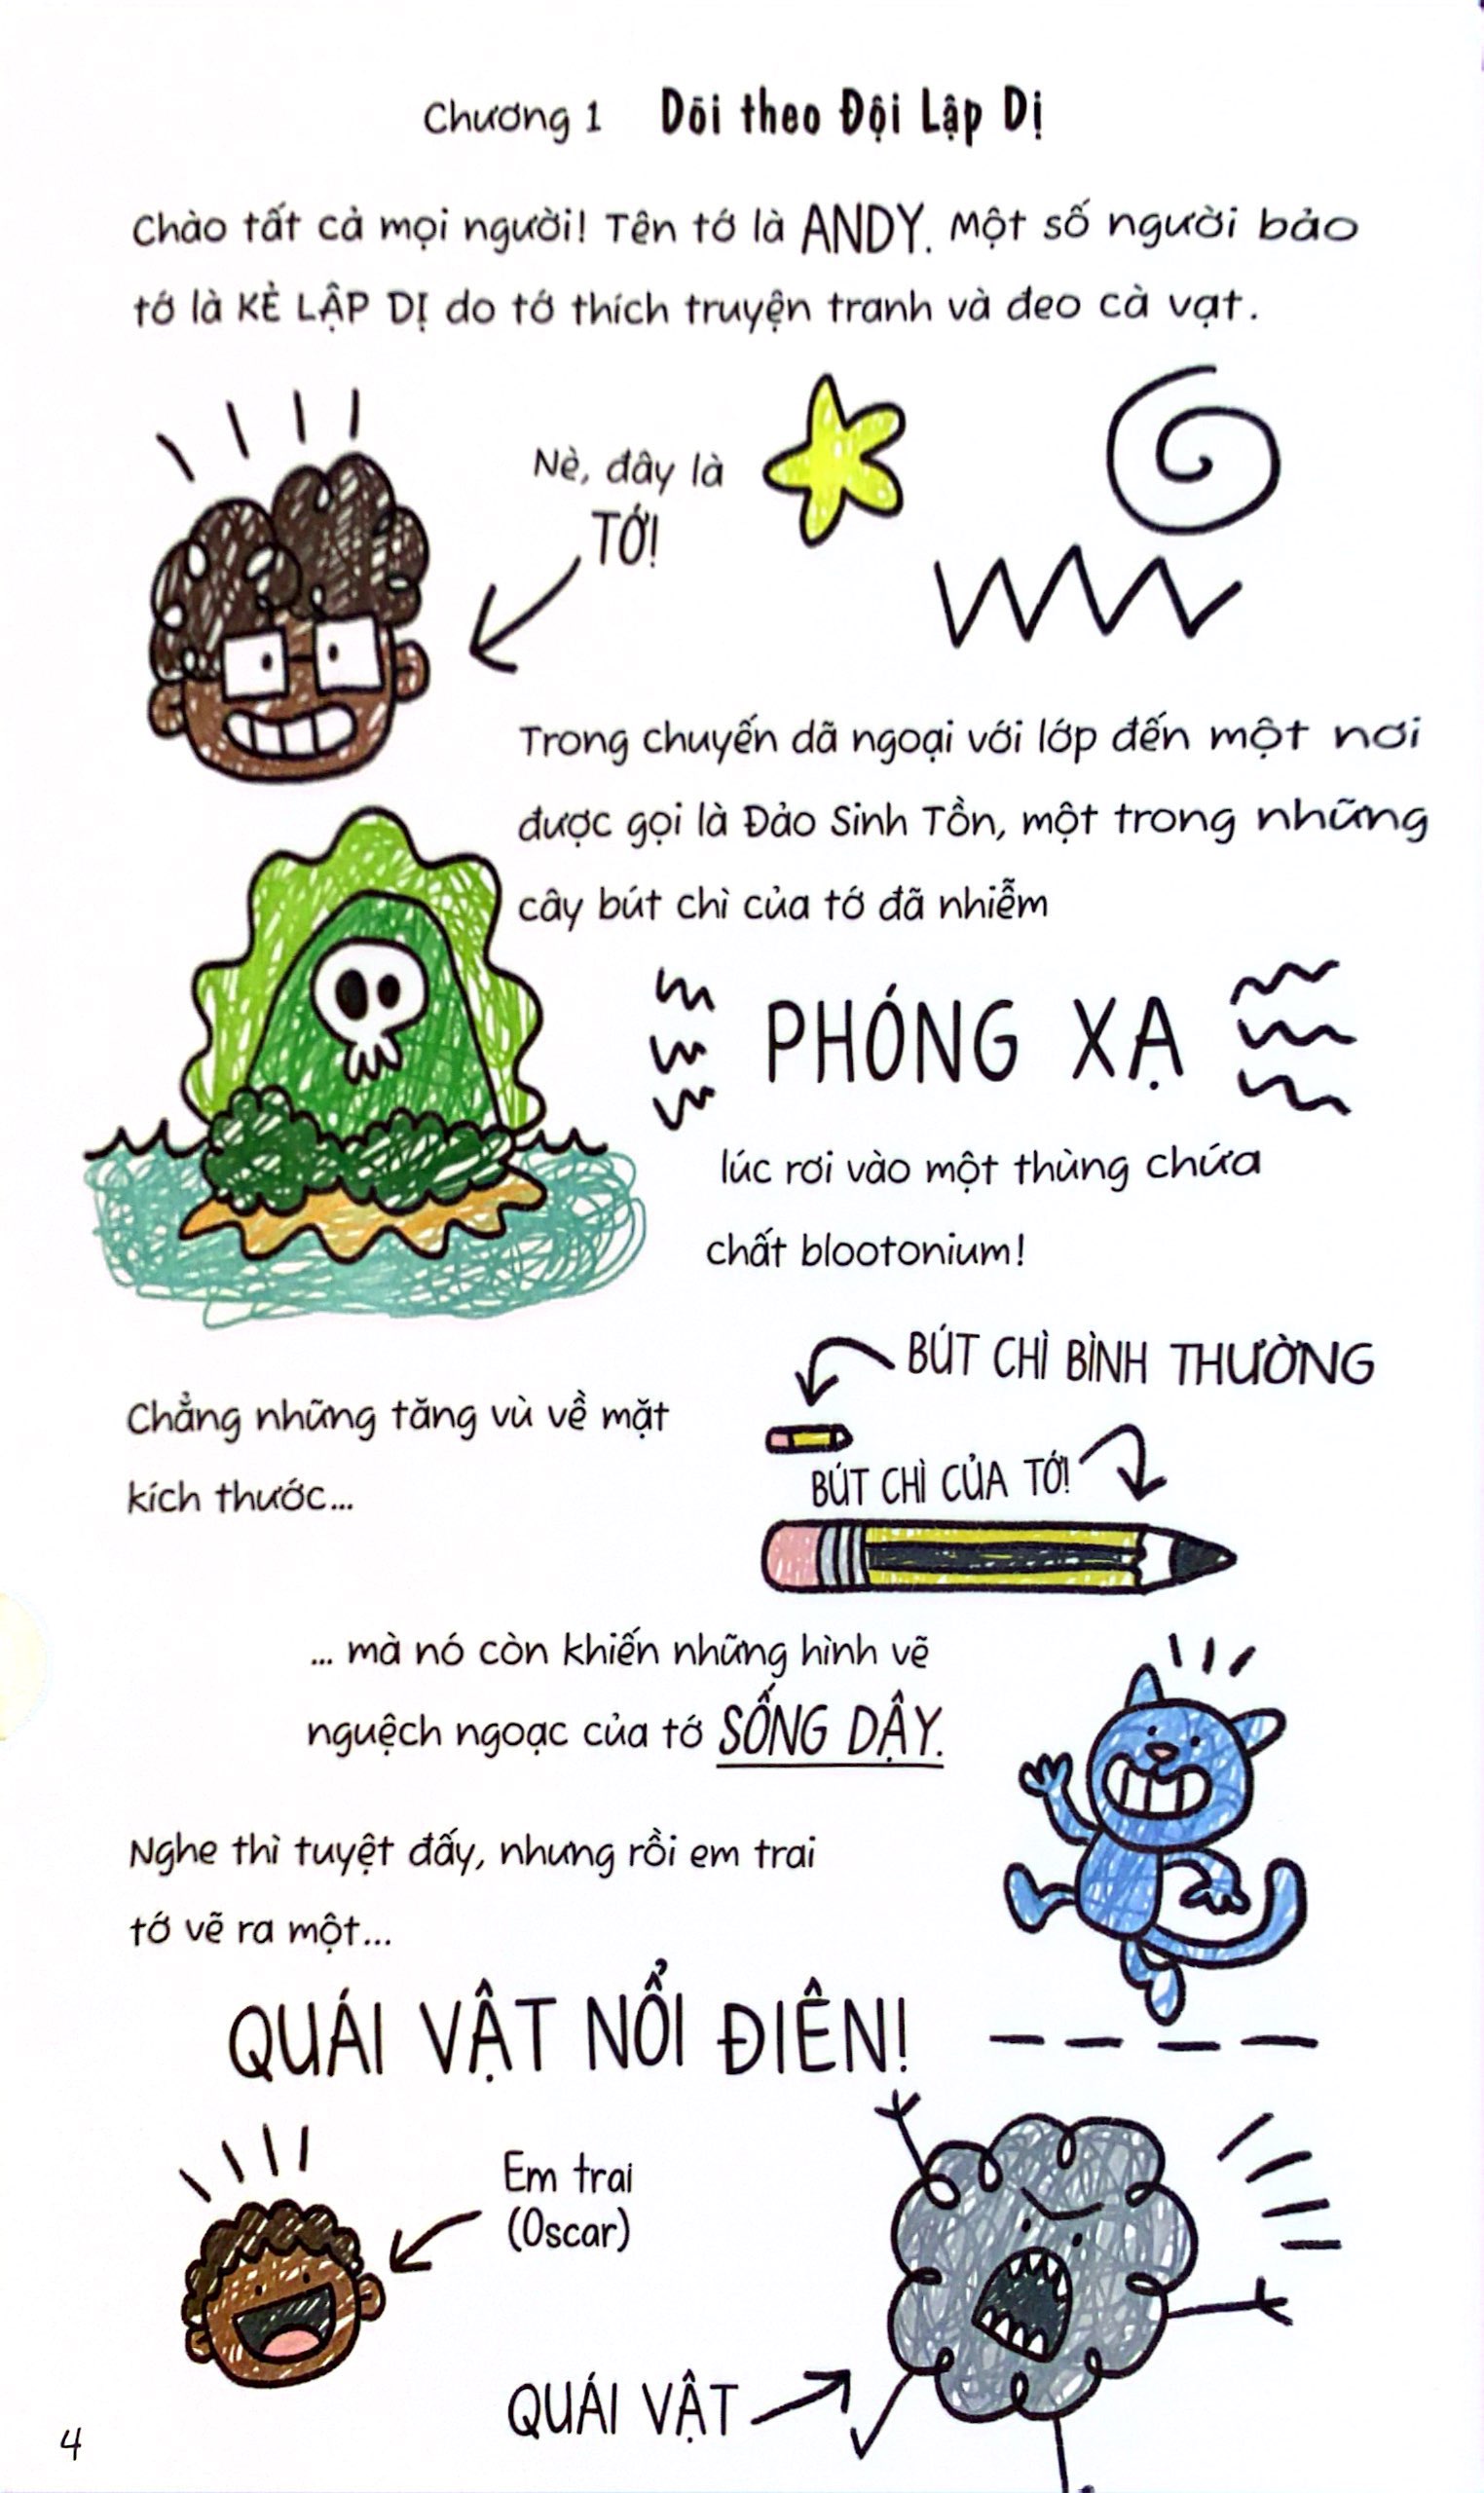 Chương 1 Dõi theo Đội Lập Dị
Chào tất cả mọi người! Tên tớ là ANDY. Một số người bảo
tớ là KẺ LẬP DỊ do tớ thích truyện tranh và đeo cà vạt.
Nè, đây là
TỚ!
Trong chuyến dã ngoại với lớp đến một nơi
được gọi là Đảo Sinh Tồn, một trong những
cây bút chì của tớ đã nhiễm
PHÓNG XẠ
lúc rơi vào một thùng chứa
chất blootonium!
BÚT CHÌ BÌNH THƯỜNG
Chẳng những tăng vù về mặt
kích thước...
BÚT CHÌ CỦA TỚ!
... mà nó còn khiến những hình vẽ
nguệch ngoạc của tớ SỐNG DẬY.
Nghe thì tuyệt đấy, nhưng rồi em trai
tớ vẽ ra một...
QUÁI VẬT NỔI ĐIÊN!
Em trai
(Oscar)
QUÁI VẬT
4